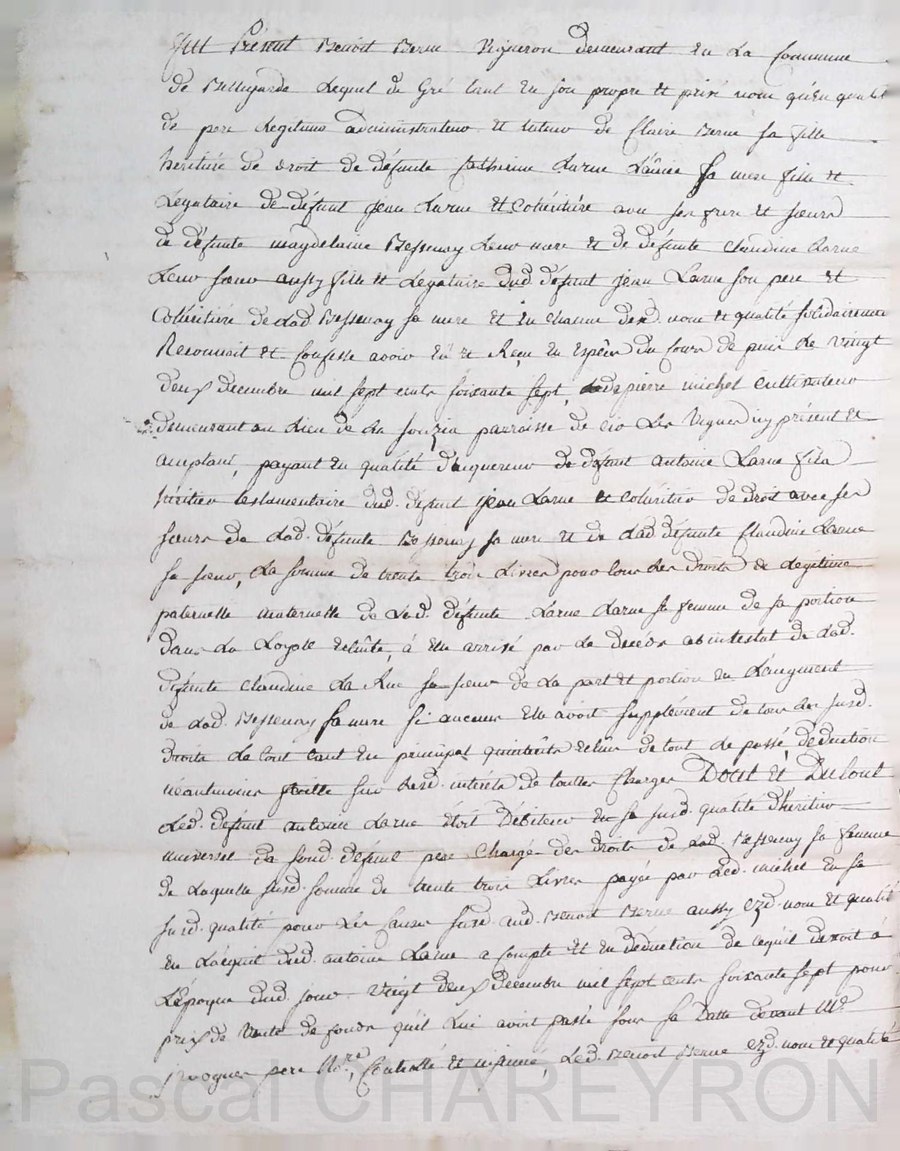 fut Présent Benoit Berne Vigneron demeurant en La Commune
de Bellegarde Lequel de Gré tant en son propre et privé nom qu'en qualité
de pere Legitime administrateur et tuteur de Claire Berne sa fille
heritiére de droit de défunte Catherine Larue L'ainée sa mere fille et
Legataire de défunt jean Larue et Cohéritiére avec ses frere et sœurs
de défunte magdelaine Bessenay Leur mere et de défunte Claudine Larue
Leur sœur aussy fille et Legataire dud défunt jean Larue son pere et
Cohéritiére de Lad Bessenay sa mere et en chacun desd. nom et qualité solidairement
Reconnoit et Confesse avoir Eû et Reçu en Espéces du Cours depuis Le vingt
deux decembre mil sept cents soixante sept, de pierre michel cultivateur
demeurant au Lieu de La parroisse de Les Vignes icy présent et
acceptant, payant en qualité d'acquereur de défunt antoine Larue fils
héritier testamentaire dud. défunt jean Larue et Cohéritier de Droit avec ses
sœurs de Lad. défunte Bessenay sa mere et de Lad. défunte Claudine Larue
sa sœur, La somme de trente trois Livres pour tous Les Droits de Légitime
paternelle maternelle de Led. défunte Larue Larue sa femme de sa portion
dans La à elle arrivé par Le Decés abintestat de Lad.
défunte Claudine La Rue sa sœur de La part et portion en L'augment
de Lad. Bessenay sa mere si aucun elle avoit supplément de tous Les susd.
Droits Le tout tant en principal qu'interêts de tout Le passé déduction
néantmoins faitte sur Lesd. intérêts de touttes Charges Dont Et Du tout
Led. défunt antoine Larue étoit Débiteur en sa susd. qualité d'héritier
universel du sond. défunt pere Chargé des Droits de Lad. Bessenay sa femme
de Laquelle susd. somme de trente trois Livres payée par Led. michel en sa
susd. qualité pour Les Causes susd. aud. Benoit Berne aussy ezd. nom et qualité
en L'acquit dud. antoine Larue a Compte et en Déduction de ce qu'il devoit à
L'époque dud. jour Vingt deux Decembre mil sept cents soixante sept pour
prix de Vente de fonds qu'il Lui avoit passé sous sa Datte devant Me
pere Nre, Controllé et insinué, Led. Benoit Berne ezd. nom et qualité
Pascal CHAREYRON